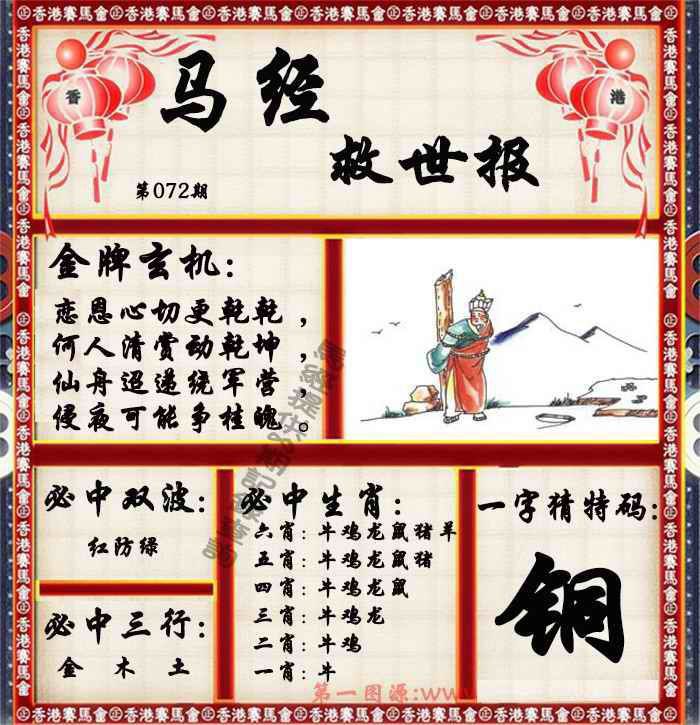 香港賽馬會
香 港
马经
救世报
第072期
金牌玄机：
恋恩心切更乾乾，
何人清赏动乾坤，
仙舟迢递绕军营，
侵夜可能争桂魄。
必中双波：
红防绿
必中三行：
金 木 土
必中生肖：
六肖：牛鸡龙鼠猪羊
五肖：牛鸡龙鼠猪
四肖：牛鸡龙鼠
三肖：牛鸡龙
二肖：牛鸡
一肖：牛
一字猜特码：
铜
第一图源:www